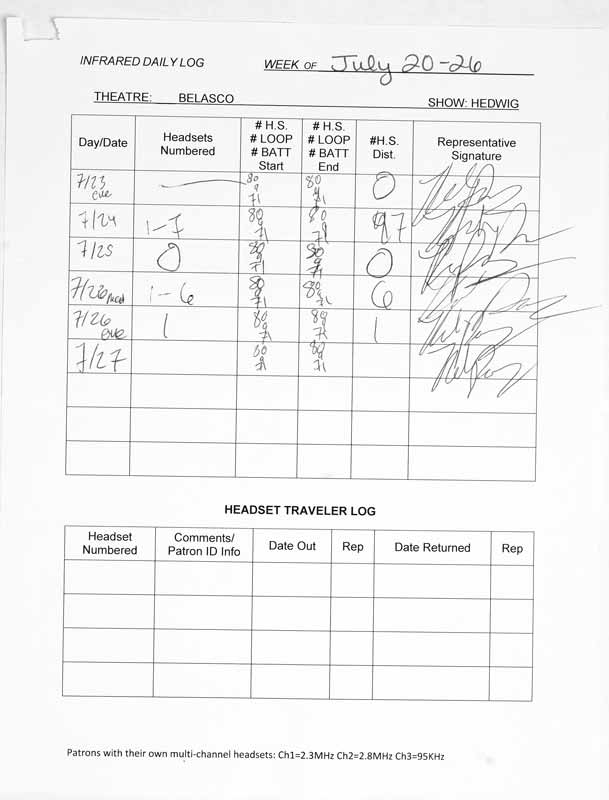 INFRARED DAILY LOG WEEK OF July 20-26
THEATRE: BELASCO SHOW: HEDWIG
Day/Date Headsets Numbered # H.S. # LOOP # BATT Start # H.S. # LOOP # BATT End #H.S. Dist. Representative Signature
7/23 eve 80 9 71 80 9 71 0
7/24 1-7 80 9 71 80 9 71 7
7/25 0 80 9 71 80 9 71 0
7/26 mat 1-6 80 9 71 80 9 71 6
7/26 eve 1 80 9 71 80 9 71 1
7/27 80 9 71 80 9 71
HEADSET TRAVELER LOG
Headset Numbered Comments/ Patron ID Info Date Out Rep Date Returned Rep
Patrons with their own multi-channel headsets: Ch1=2.3MHz Ch2=2.8MHz Ch3=95KHz